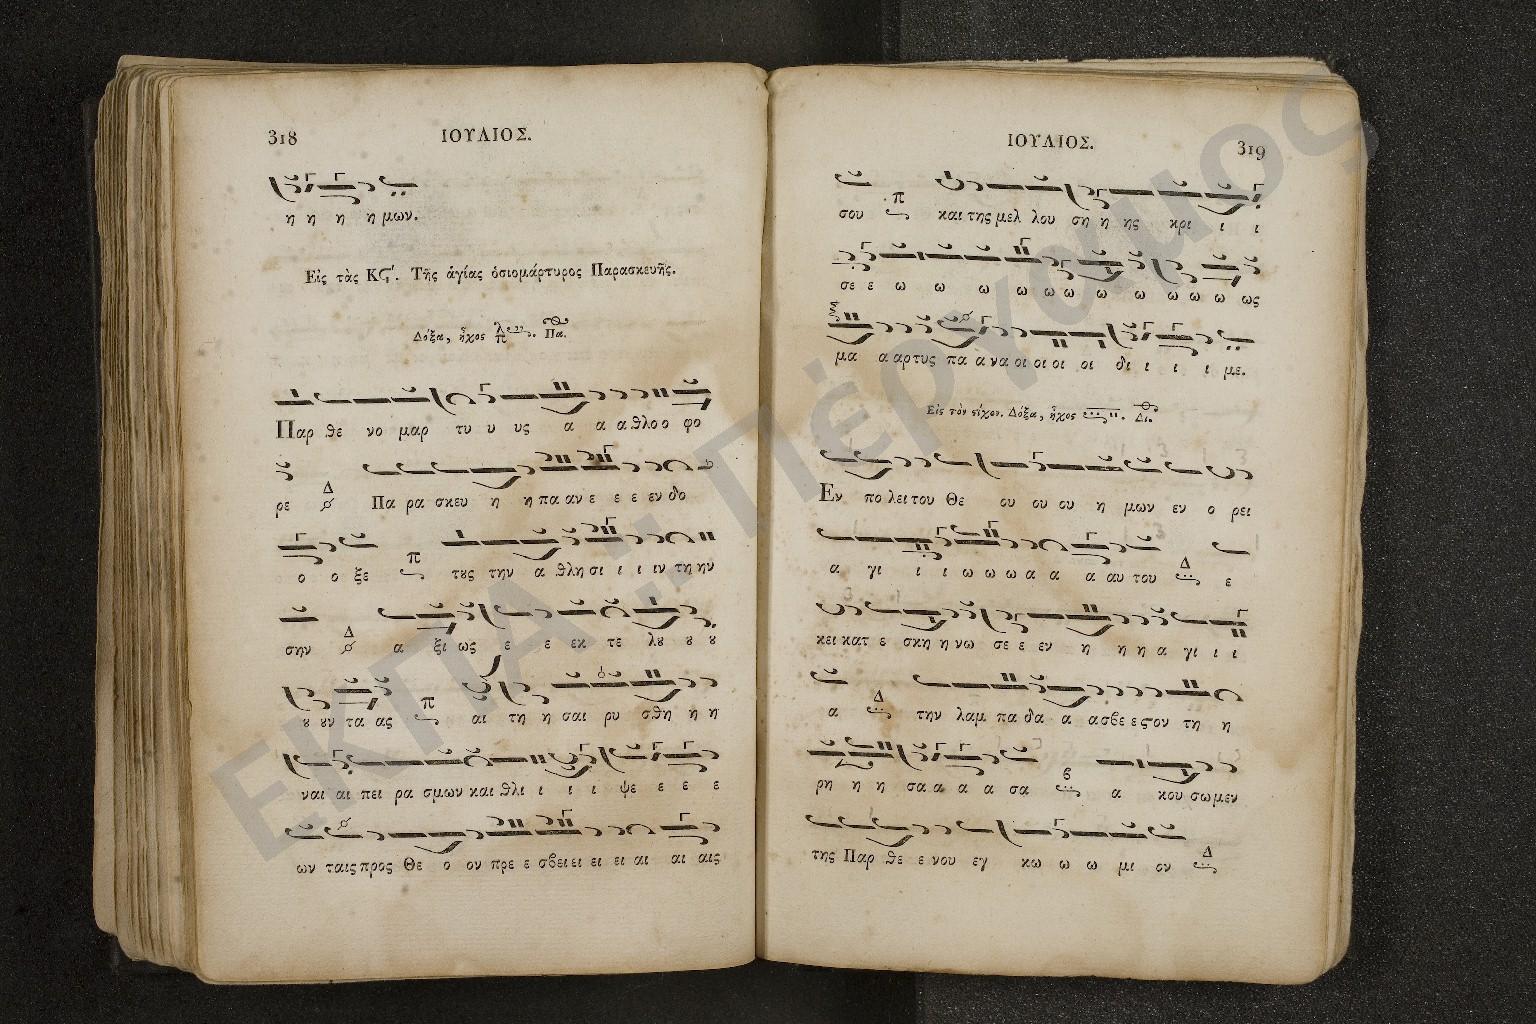 318 ΙΟΥΛΙΟΣ.
η η η η μων.
Εἰς τὰς Κϛ'. Τῆς ἁγίας ὁσιομάρτυρος Παρασκευῆς.
Δόξα, ἦχος Πα.
Παρ θε νο μαρ τυ υ υς α α α θλο ο φο
ρε Δ Πα ρα σκευ η η πα αν ε ε ε εν δο
ο ο ξε π τȣς την α θλη σι ι ι ιν τη ην
σην Δ α ξι ως ε ε εκ τε λȣ ȣ ȣ
ȣ ȣν τα ας π αι τη η σαι ρυ σθη η η
ναι αι πει ρα σμων και θλι ι ι ι ψε ε ε ε
ων ταις προς Θε ο ον πρε ε σβει ει ει ει αι αι αις
319 ΙΟΥΛΙΟΣ.
σου π και της μελ λου ση η ης κρι ι ι
σε ε ω ω ω ω ω ω ω ω ω ω ω ως
μα α αρτυς πα α να οι οι οι οι δι ι ι ι με.
Εἰς τὸν ϛίχον. Δόξα, ἦχος Δι.
Εν πο λει του Θε ου ου ου η μων εν ο ρει
α γι ι ι ω ω ω α α α αυ του Δ ε
κει κατ ε σκη η νω σε ε εν η η η α γι ι ι
α Δ την λαμ πα δα α ασβε εϛον τη η
ρη η η σα α α α σα β α κου σω μεν
της Παρ θε ε νου εγ κω ω ω μι ον Δ
ΕΚΠΑ :: Πέργαμος